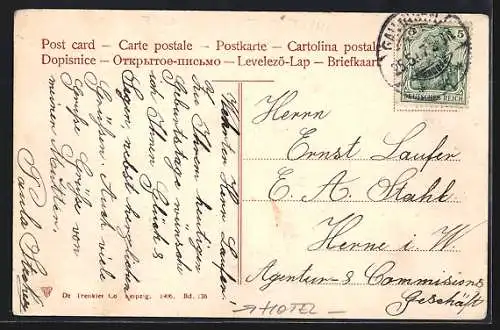 Post card – Carte postale – Postkarte – Cartolina postale
Dopisnice – Открытое-письмо – Levelező-Lap – Briefkaart
5
DEUTSCHES REICH
Verehrter Herr Laufer!
Zu Ihrem heutigen
Geburtstage wünsche
ich Ihnen Glück &
Segen, nebst herzlichen
Grüßen. Auch viele
Grüße von
meinen Müttern.
Paula
Herrn
Ernst Laufer
E. A. Stahl
Herne i. W.
Agentur- & Commissions
Geschäft
Dr. Trenkler Co. Leipzig. 1906.
HOTEL